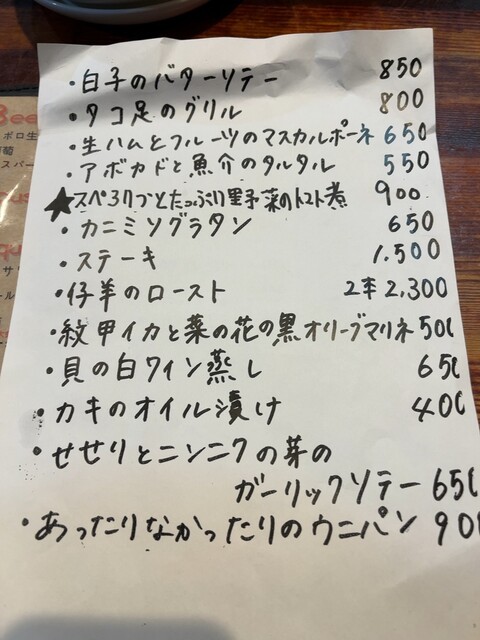 ・白子のバターソテー 850
・タコ足のグリル 800
・生ハムとフルーツのマスカルポーネ 650
・アボカドと魚介のタルタル 550
★スペアリブとたっぷり野菜のトマト煮 900
・カニミソグラタン 650
・ステーキ 1,500
・仔羊のロースト 2本 2,300
・紋甲イカと菜の花の黒オリーブマリネ 500
・貝の白ワイン蒸し 650
・カキのオイル漬け 400
・せせりとニンニクの芽の
ガーリックソテー 650
・あったりなかったりのウニパン 900